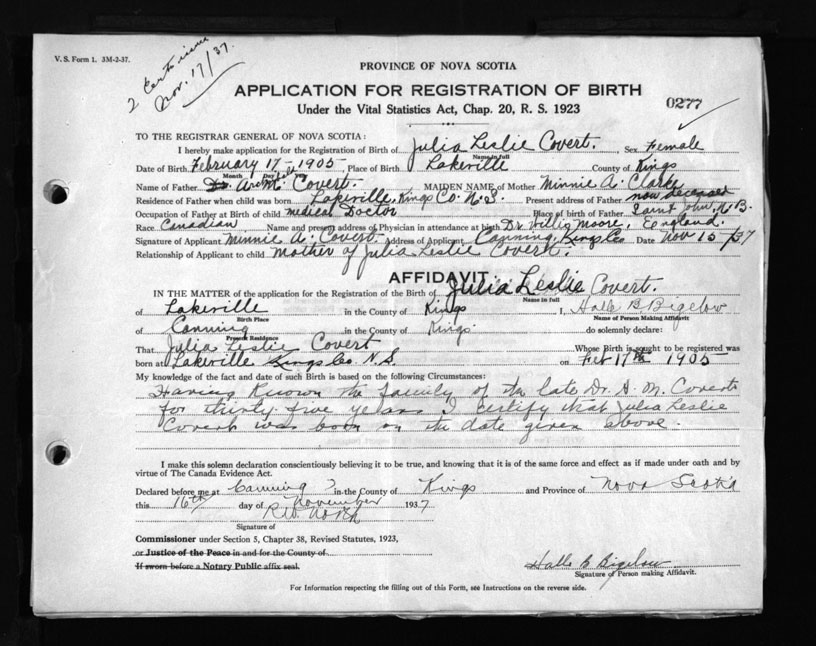 V. S. Form 1. 3M-2-37.
2 Certs issued
Nov. 17/37.
PROVINCE OF NOVA SCOTIA
APPLICATION FOR REGISTRATION OF BIRTH
0277
Under the Vital Statistics Act, Chap. 20, R. S. 1923
TO THE REGISTRAR GENERAL OF NOVA SCOTIA:
I hereby make application for the Registration of Birth of Julia Leslie Covert. Sex Female
Name in full
Date of Birth February 17 - 1905 Place of Birth Lakeville County of Kings
Month Day
Name of Father Dr. A. M. Covert. MAIDEN NAME of Mother Minnie A. Clark
Residence of Father when child was born Lakeville, Kings Co. N.S. Present address of Father now deceased
Occupation of Father at Birth of child medical Doctor Place of birth of Father Saint John, N.B.
Race Canadian Name and present address of Physician in attendance at birth Dr. Willis Moore, England.
Signature of Applicant Minnie A. Covert. Address of Applicant Canning, Kings Co Date Nov 15/37
Relationship of Applicant to child mother of Julia Leslie Covert.
AFFIDAVIT
IN THE MATTER of the application for the Registration of the Birth of Julia Leslie Covert.
Name in full
of Lakeville in the County of Kings I, Halle B. Bigelow
Birth Place Name of Person Making Affidavit
of Canning in the County of Kings do solemnly declare:
Present Residence
That Julia Leslie Covert Whose Birth is sought to be registered was
born at Lakeville Kings Co. N.S. on Feb 17th 1905
My knowledge of the fact and date of such Birth is based on the following Circumstances:
Having known the family of the late Dr. A. M. Covert
for thirty five years I certify that Julia Leslie
Covert was born on the date given above.
I make this solemn declaration conscientiously believing it to be true, and knowing that it is of the same force and effect as if made under oath and by
virtue of The Canada Evidence Act.
Declared before me at Canning in the County of Kings and Province of Nova Scotia
this 16th day of November 1937
R.W. North
Signature of
Commissioner under Section 5, Chapter 38, Revised Statutes, 1923,
or Justice of the Peace in and for the County of
If sworn before a Notary Public affix seal.
Halle B Bigelow
Signature of Person making Affidavit.
For Information respecting the filling out of this Form, see Instructions on the reverse side.